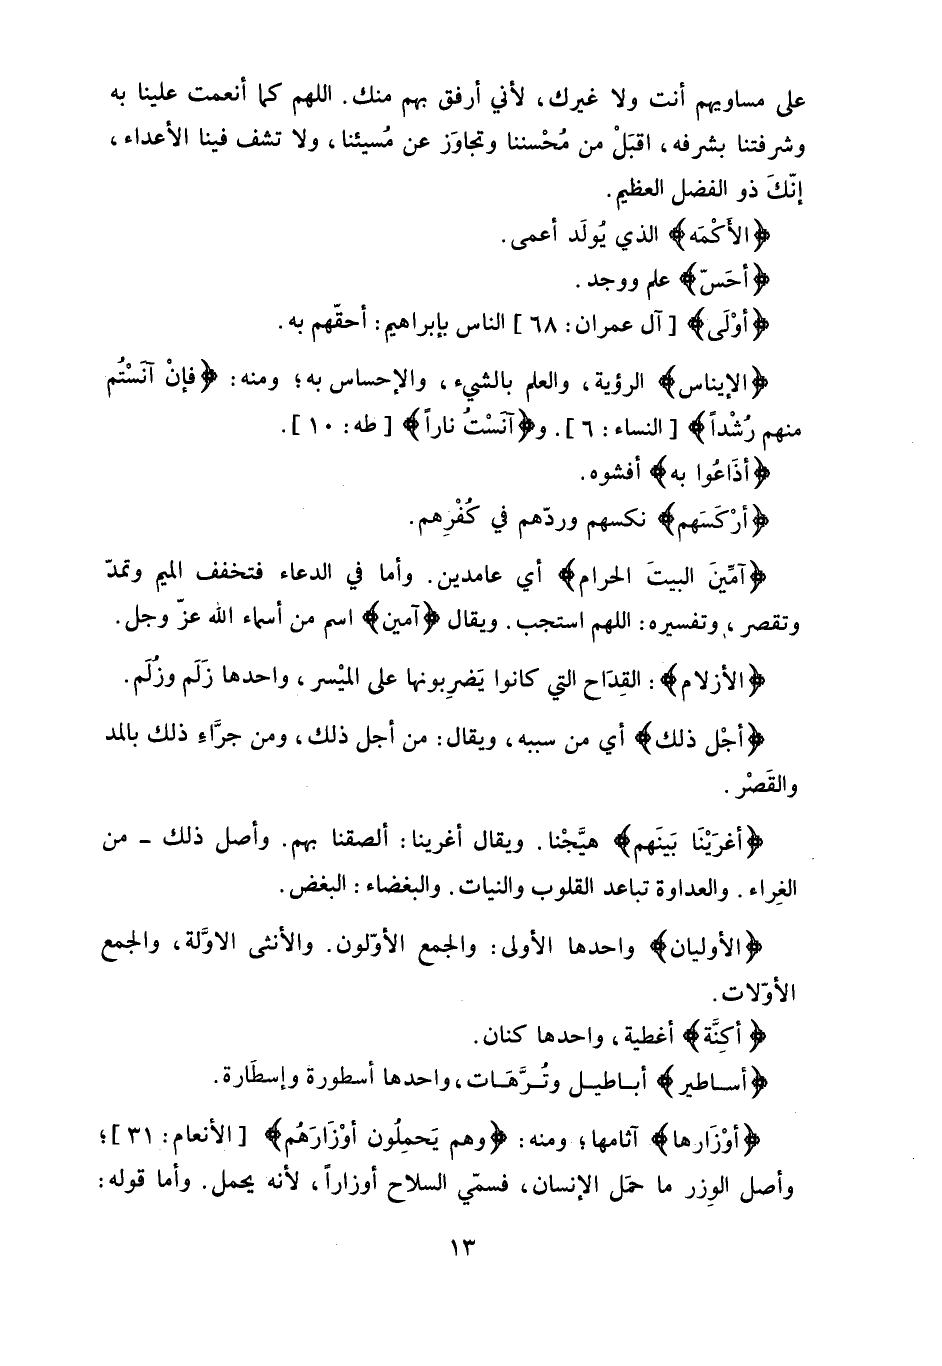 على مساويهم أنت ولا غيرك، لأني أرفق بهم منك. اللهم كما أنعمت علينا به
وشرفتنا بشرفه، اقبَلْ من مُحْسننا وتجاوَز عن مُسيئنا، ولا تشف فينا الأعداء،
إنّكَ ذو الفضل العظيم.
﴿الأَكْمَه﴾ الذي يُولَد أعمى.
﴿أحَسّ﴾ علم ووجد.
﴿أوْلَى﴾ [آل عمران: ٦٨] الناس بإبراهيم: أحقّهم به.
﴿الإيناس﴾ الرؤية، والعلم بالشيء، والإحساس به؛ ومنه: ﴿فإنْ آنَسْتُم
منهم رُشْداً﴾ [النساء: ٦]. و﴿آنَسْتُ ناراً﴾ [طه: ١٠].
﴿أذَاعُوا به﴾ أفشوه.
﴿أرْكَسَهم﴾ نكسهم وردّهم في كُفْرِهم.
﴿آمِّينَ البيتَ الحرام﴾ أي عامدين. وأما في الدعاء فتخفف الميم وتمدّ
وتقصر، وتفسيره: اللهم استجب. ويقال ﴿آمين﴾ اسم من أسماء الله عزّ وجل.
﴿الأزلام﴾: القِدَاح التي كانوا يَضرِبونها على الميْسر، واحدها زَلَم وزُلَم.
﴿أجْل ذلك﴾ أي من سببه، ويقال: من أجل ذلك، ومن جرَّاءِ ذلك بالمد
والقَصْر.
﴿أغرَيْنَا بَينَهم﴾ هيَّجْنا. ويقال أغرينا: ألصقنا بهم. وأصل ذلك - من
الغِراء. والعداوة تباعد القلوب والنيات. والبغضاء: البغض.
﴿الأوليان﴾ واحدها الأولى: والجمع الأوّلون. والأنثى الاوَّلة، والجمع
الأوّلات.
﴿أكِنَّة﴾ أغطية، واحدها كنان.
﴿أساطير﴾ أباطيل وتُرَّهَات، واحدها أسطورة وإسطَارة.
﴿أوْزَارها﴾ آثامها؛ ومنه: ﴿وهم يَحمِلُون أوْزَارَهُم﴾ [الأنعام: ٣١]؛
وأصل الوِزر ما حمَل الإنسان، فسمّي السلاح أوزاراً، لأنه يحمل. وأما قوله:
١٣